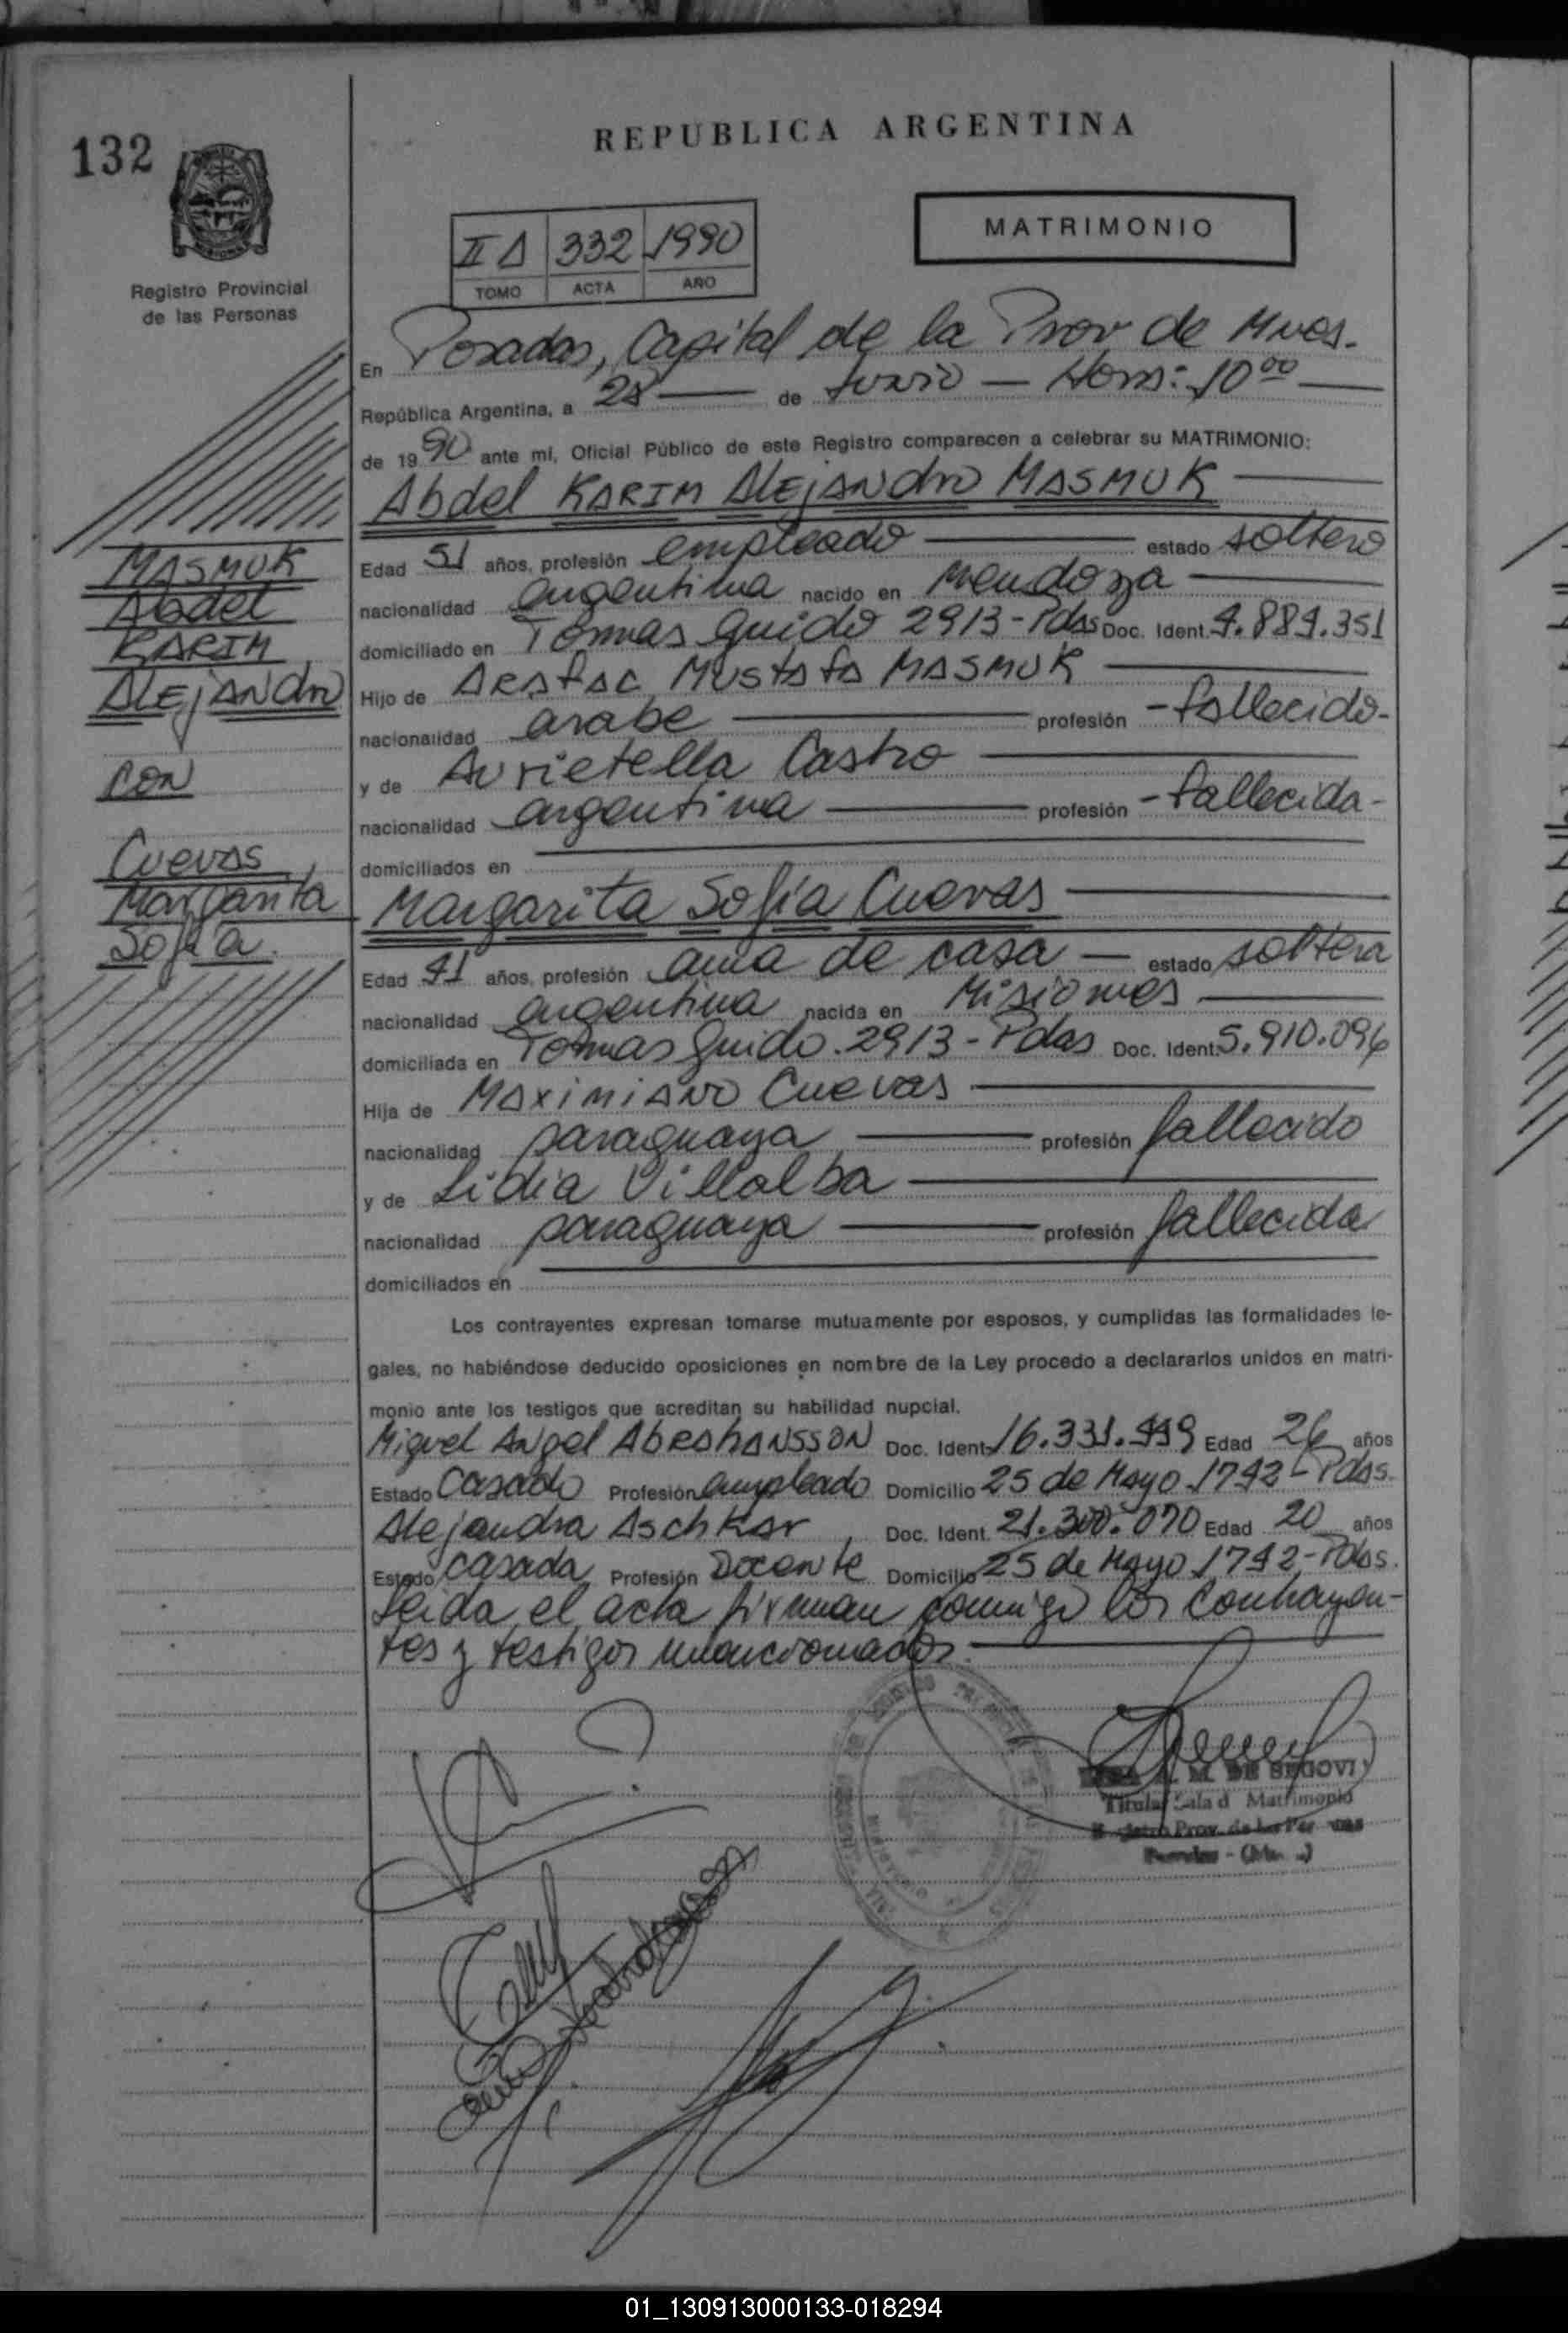 132
REPUBLICA ARGENTINA
MATRIMONIO
II A 332 1990
TOMO ACTA AÑO
Registro Provincial
de las Personas
En Posadas, Capital de la Prov de Mnes.
República Argentina, a 28 de Junio Hora: 10 00
de 1990 ante mí, Oficial Público de este Registro comparecen a celebrar su MATRIMONIO:
Abdel KARIM Alejandro MASMUK
Edad 51 años, profesión empleado estado soltero
nacionalidad argentina nacido en Mendoza
domiciliado en Tomas Guido 2913-Pdas Doc. Ident. 4.884.351
Hijo de Mustafa MASMUK
nacionalidad arabe profesión -fallecido-
y de Castro
nacionalidad argentina profesión -fallecida-
domiciliados en
MASMUK
Abdel
KARIM
Alejandro
CON
Cuevas
Margarita
Sofía
Margarita Sofía Cuevas
Edad 41 años, profesión ama de casa estado soltera
nacionalidad argentina nacida en Misiones
domiciliada en Tomas Guido 2913-Pdas Doc. Ident. 5.910.094
Hija de Maximiano Cuevas
nacionalidad paraguaya profesión fallecido
y de Lidia Villalba
nacionalidad paraguaya profesión fallecida
domiciliados en
Los contrayentes expresan tomarse mutuamente por esposos, y cumplidas las formalidades le-
gales, no habiéndose deducido oposiciones en nombre de la Ley procedo a declararlos unidos en matri-
monio ante los testigos que acreditan su habilidad nupcial.
Miguel Angel Abrahansson Doc. Ident. Edad 26 años
Estado Casado Profesión empleado Domicilio 25 de Mayo 1742-Pdas.
Alejandra Aschkar Doc. Ident. 21.300.070 Edad 20 años
Estado casada Profesión Docente Domicilio 25 de Mayo 1742-Pdas.
Leida el acta firman conmigo los contrayen-
tes y testigos mencionados.
M. DE SEGOVI
Titular Sala d Matrimonio
Prov. de las Per
01_130913000133-018294